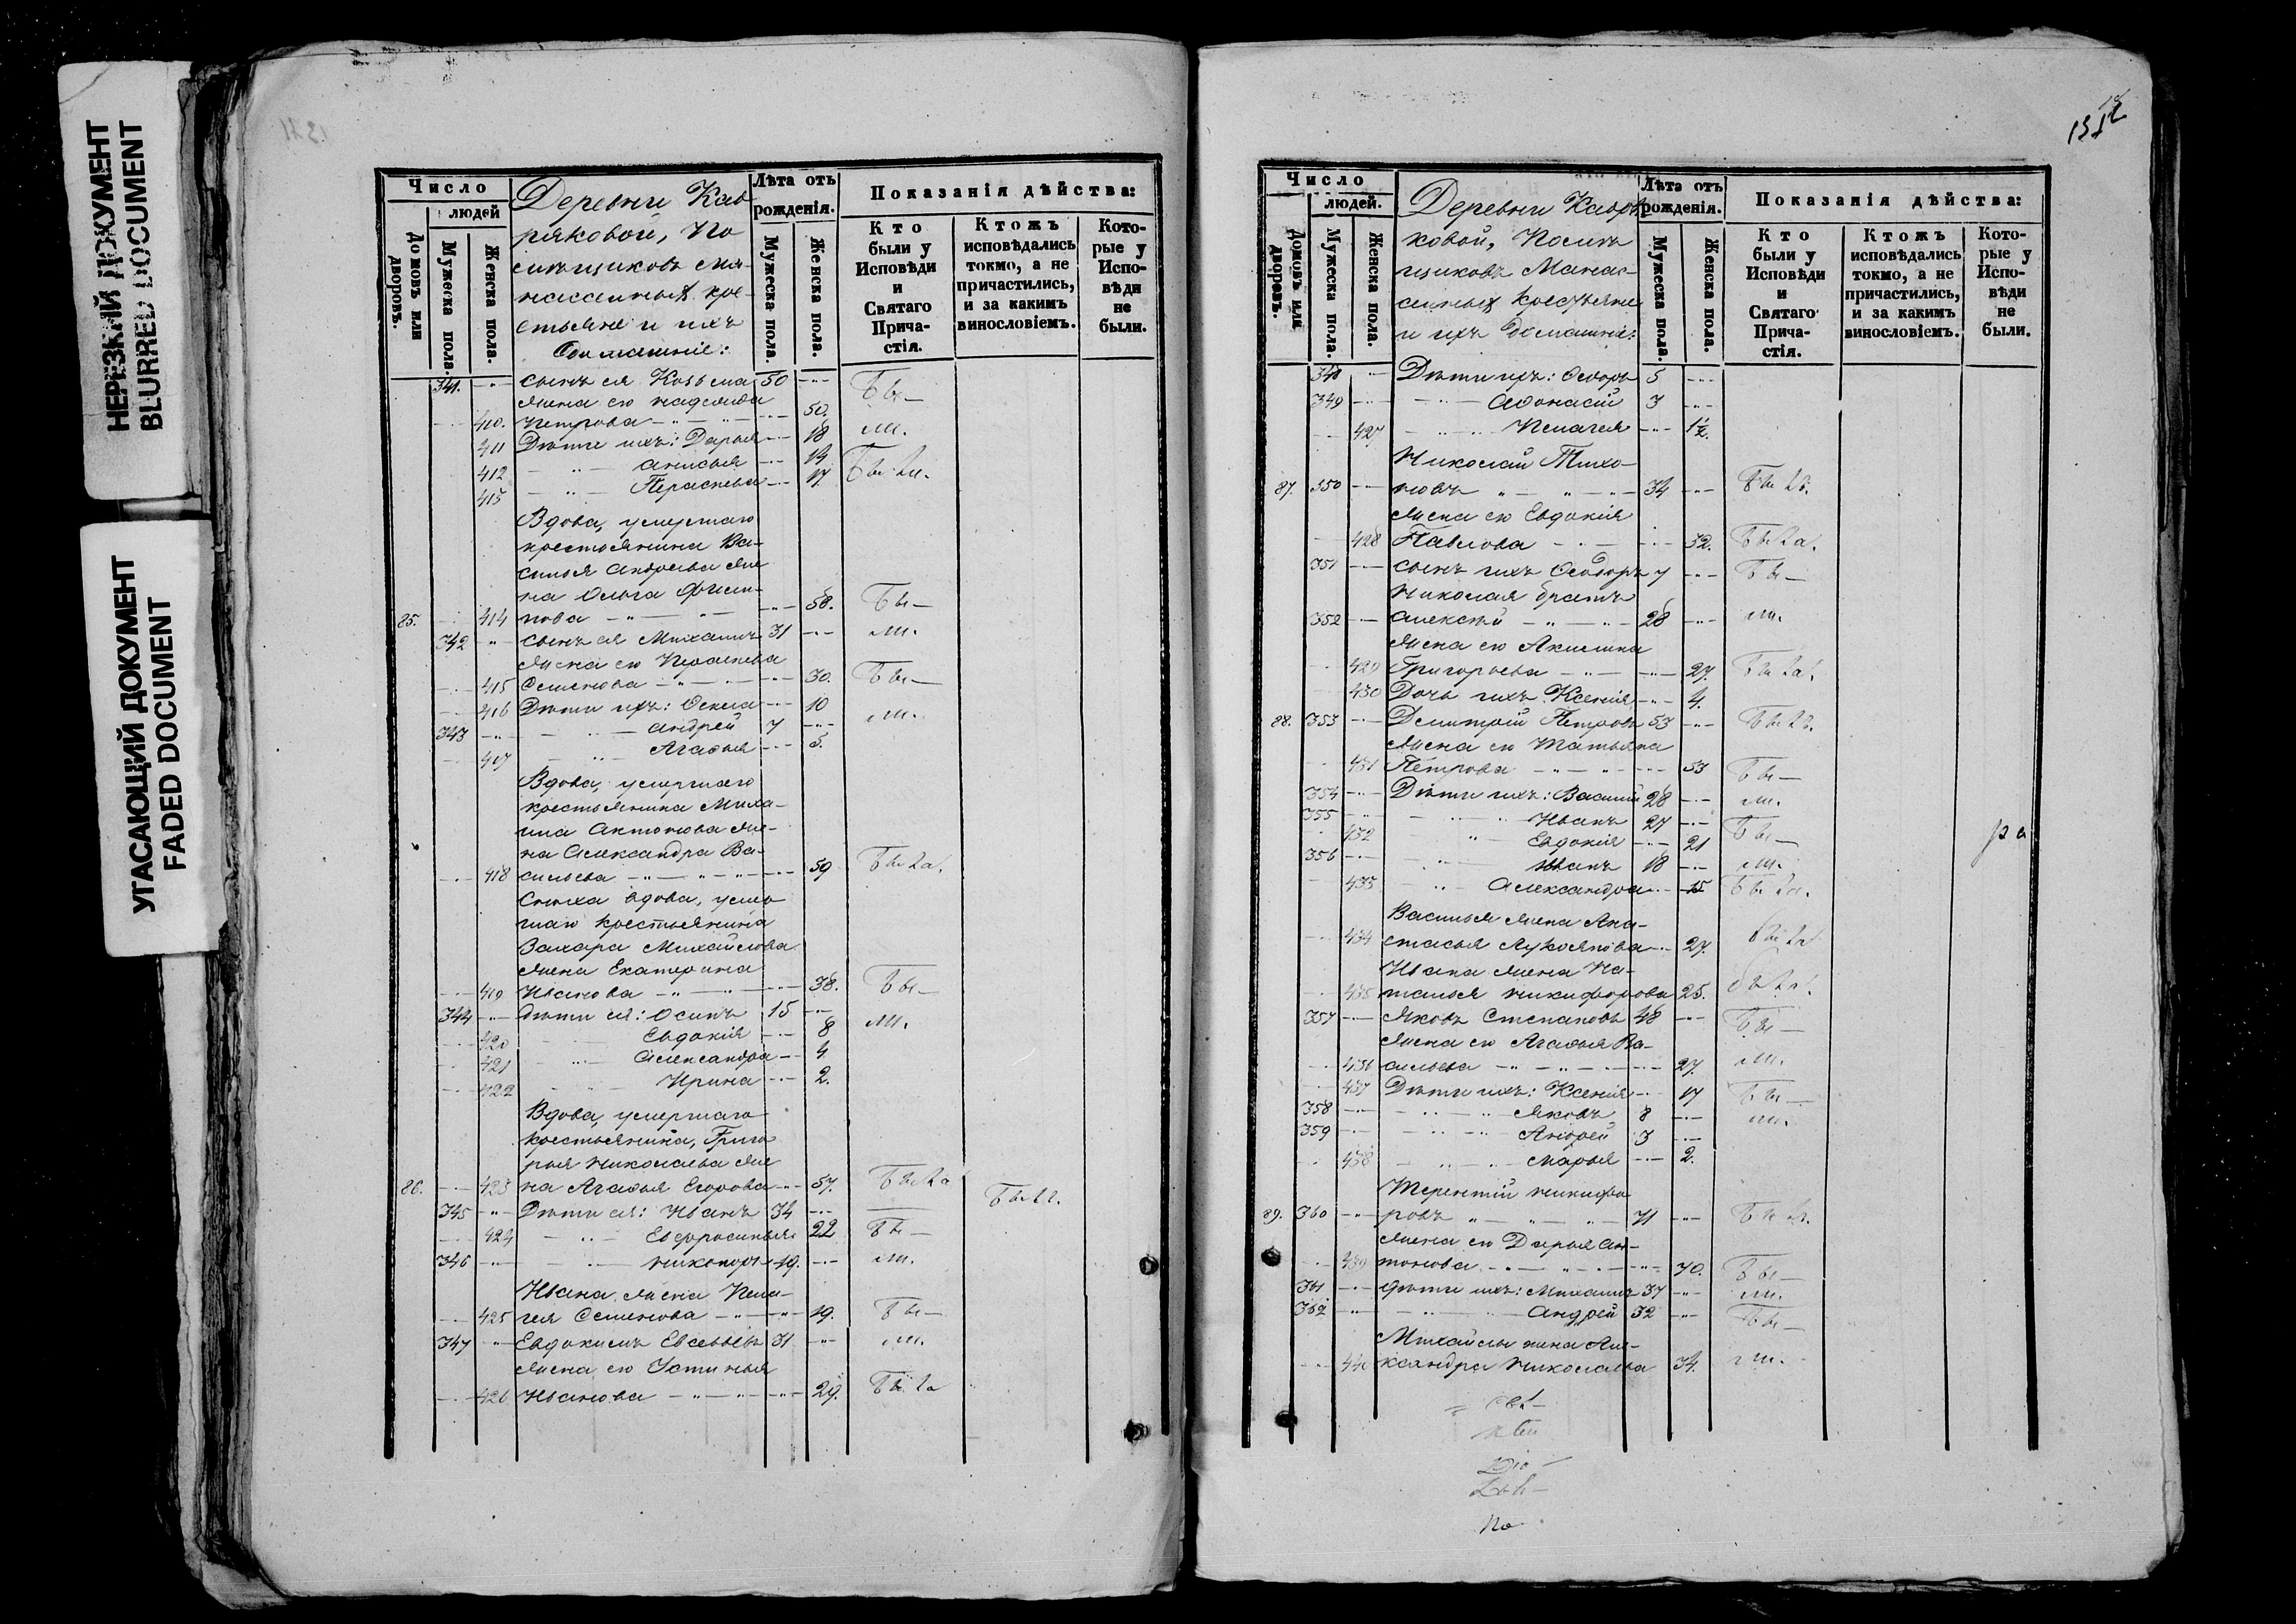 НЕРЕЗКИЙ ДОКУМЕНТ
BLURRED DOCUMENT
УГАСАЮЩИЙ ДОКУМЕНТ
FADED DOCUMENT
Число
людей
Домовъ или дворовъ.
Мужеска пола.
Женска пола.
Деревни Кав
ряковой, По
мѣщиковъ Ма-
насеиныхъ кре-
стьяне и ихъ
домашніе:
Лѣта отъ рожденія.
Мужеска пола.
Женска пола.
Показанія дѣйства:
Кто были у Исповѣди и Святаго Причастія.
Ктожъ исповѣдались токмо, а не причастились, и за какимъ винословіемъ.
Которые у Исповѣди не были.
341. сынъ ея Козьма 50 Бы—
жена его Надежда
410. Петрова 50. ли.
411 Дѣти ихъ: Дарья 18
412 Анисья 14
413 Перасковья 17.
Вдова, умершаго
крестьянина Ва-
силья Андреева же
на Ольга Филип-
85. 414 пова 58. Бы—
342 сынъ ея Михаилъ 31 ли.
жена его Перасковья
415 Семенова 30. Бы—
416 Дѣти ихъ: Фекла 10 ли.
343 Андрей 7
417 Агафья 5.
Вдова, умершаго
крестьянина Миха-
ила Антонова же-
на Александра Ва-
418 сильева 59 Была.
Сноха вдова, умер
шаго крестьянина
Захара Михайлова
жена Екатерина
419 Иванова 38. Бы—
344 дѣти ея: Осипъ 15 ли.
420 Евдокія 8
421 Александра 4
422 Ирина 2.
Вдова, умершаго
крестьянина, Григо
рья Николаева же
86. 423 на Агафья Егорова 57. Была
345 Дѣти ея: Иванъ 34
424 Евфросинья 22 Бы—
346 Никаноръ 19. ли.
Ивана жена Пела-
425 гея Семенова 19. Бы—
347 Евдокимъ Евсевьевъ 31 ли.
жена его Устинья
426 Иванова 29. Была
Число
людей.
Домовъ или дворовъ.
Мужеска пола.
Женска пола.
Деревни Кавря
ковой, Помѣ
щиковъ Манас-
еиныхъ крестьяне
и ихъ домашніе:
Лѣта отъ рожденія.
Мужеска пола.
Женска пола.
Показанія дѣйства:
Кто были у Исповѣди и Святаго Причастія.
Ктожъ исповѣдались токмо, а не причастились, и за какимъ винословіемъ.
Которые у Исповѣди не были.
348 Дѣти ихъ: Ѳедоръ 5
349 Афонасій 3
427 Пелагея 1½.
Николай Тихо-
87. 350 новъ 34 Былъ.
жена его Евдокія
428 Павлова 32. Была.
351 сынъ ихъ Ѳедоръ 7 Бы—
Николая братъ
352 Алексѣй 28 ли.
жена его Акилина
429 Григорьева 27. Была.
430 Дочь ихъ Ксенія 4.
88. 353 Дмитрій Петровъ 53 Былъ.
жена его Татьяна
431 Петрова 53 Бы—
354 Дѣти ихъ: Василій 28 ли.
355 Иванъ 27
432 Евдокія 21 Бы—
356 Иванъ 18 ли.
433 Александра 15 Была.
Василья жена Ана-
434 стасья Лукоянова 27. Была
Ивана жена На-
435 талья Никифорова 25.
357 Яковъ Степановъ 48 Бы—
жена его Агафья Ва-
436 сильева 27. ли.
437 Дѣти ихъ: Ксенія 17 Бы—
358 Яковъ 8 ли.
359 Андрей 3
438 Марья 2.
Терентій Никифо
89. 360 ровъ 71 Былъ.
жена его Дарья Ан-
439 тонова 70. Бы—
361 дѣти ихъ: Михаилъ 37 ли.
362 Андрей 32 Бы—
Михайлы жена Але-
440 ксандра Николаева 34. ли.